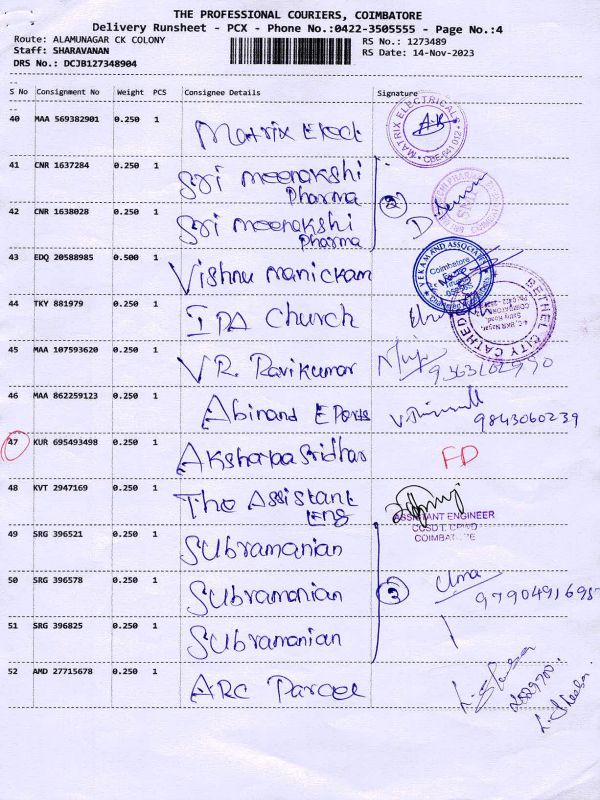 THE PROFESSIONAL COURIERS, COIMBATORE
Delivery Runsheet - PCX - Phone No.:0422-3505555 - Page No.:4
Route: ALAMUNAGAR CK COLONY RS No.: 1273489
Staff: SHARAVANAN RS Date: 14-Nov-2023
DRS No.: DCJB127348904
S No Consignment No Weight PCS Consignee Details Signature
40 MAA 569382901 0.250 1 Matrix Elect
MATRIX ELECTRICALS
CBE-641 012
41 CNR 1637284 0.250 1 Sri Meenakshi Pharma
42 CNR 1638028 0.250 1 Sri Meenakshi Pharma
2
43 EDQ 20588985 0.500 1 Vishnu Manickam
Coimbatore
44 TKY 881979 0.250 1 IPA Church
BETHEL CITY CATHED
45 MAA 107593620 0.250 1 V R. Ravikumar
46 MAA 862259123 0.250 1 Abinand Exports 9843060239
47 KUR 695493498 0.250 1 Aksharpa Sridhar FD
48 KVT 2947169 0.250 1 The Assistant Eng
ASSISTANT ENGINEER
49 SRG 396521 0.250 1 Subramanian
50 SRG 396578 0.250 1 Subramanian 3 Uma
51 SRG 396825 0.250 1 Subramanian
52 AMD 27715678 0.250 1 ARC Parcel